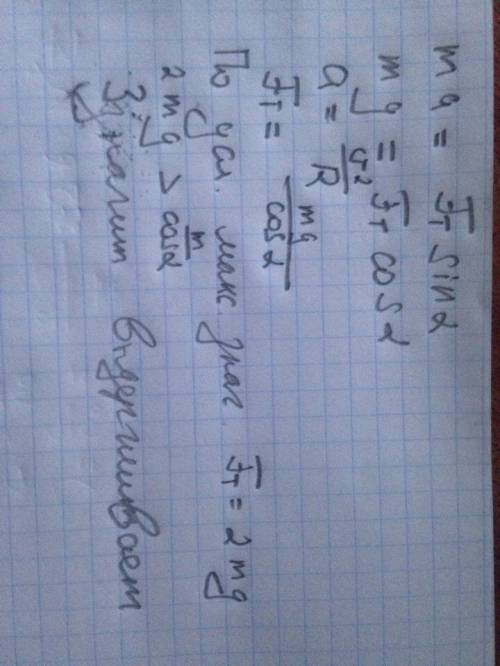 ma = Fт sinα
mg = Fт cosα
a = v²/R
Fт = mg/cosα
По усл. макс. знач. Fт = 2mg
2mg > m/cosα
Значит выдерживает